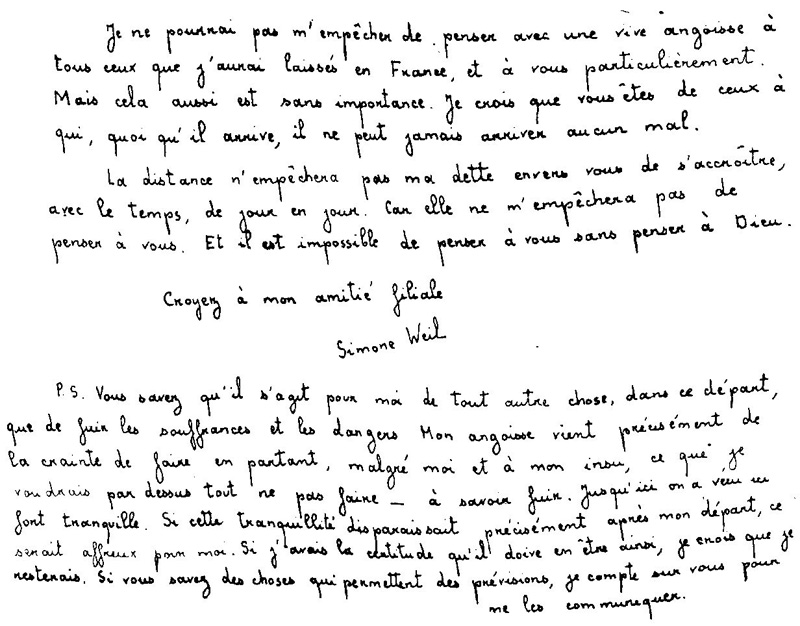 Je ne pourrai pas m'empêcher de penser avec une vive angoisse à
tous ceux que j'aurai laissés en France, et à vous particulièrement.
Mais cela aussi est sans importance. Je crois que vous êtes de ceux à
qui, quoi qu'il arrive, il ne peut jamais arriver aucun mal.
La distance n'empêchera pas ma dette envers vous de s'accroître,
avec le temps, de jour en jour. Car elle ne m'empêchera pas de
penser à vous. Et il est impossible de penser à vous sans penser à Dieu.
Croyez à mon amitié filiale
Simone Weil
P.S. Vous savez qu'il s'agit pour moi de tout autre chose, dans ce départ,
que de fuir les souffrances et les dangers Mon angoisse vient précisément de
la crainte de faire en partant, malgré moi et à mon insu, ce que je
voudrais par dessus tout ne pas faire — à savoir fuir. Jusqu'ici on a vécu ici
fort tranquille. Si cette tranquillité disparaissait précisément après mon départ, ce
serait affreux pour moi. Si j'avais la certitude qu'il doive en être ainsi, je crois que je
resterais. Si vous savez des choses qui permettent des prévisions, je compte sur vous pour
me les communiquer.